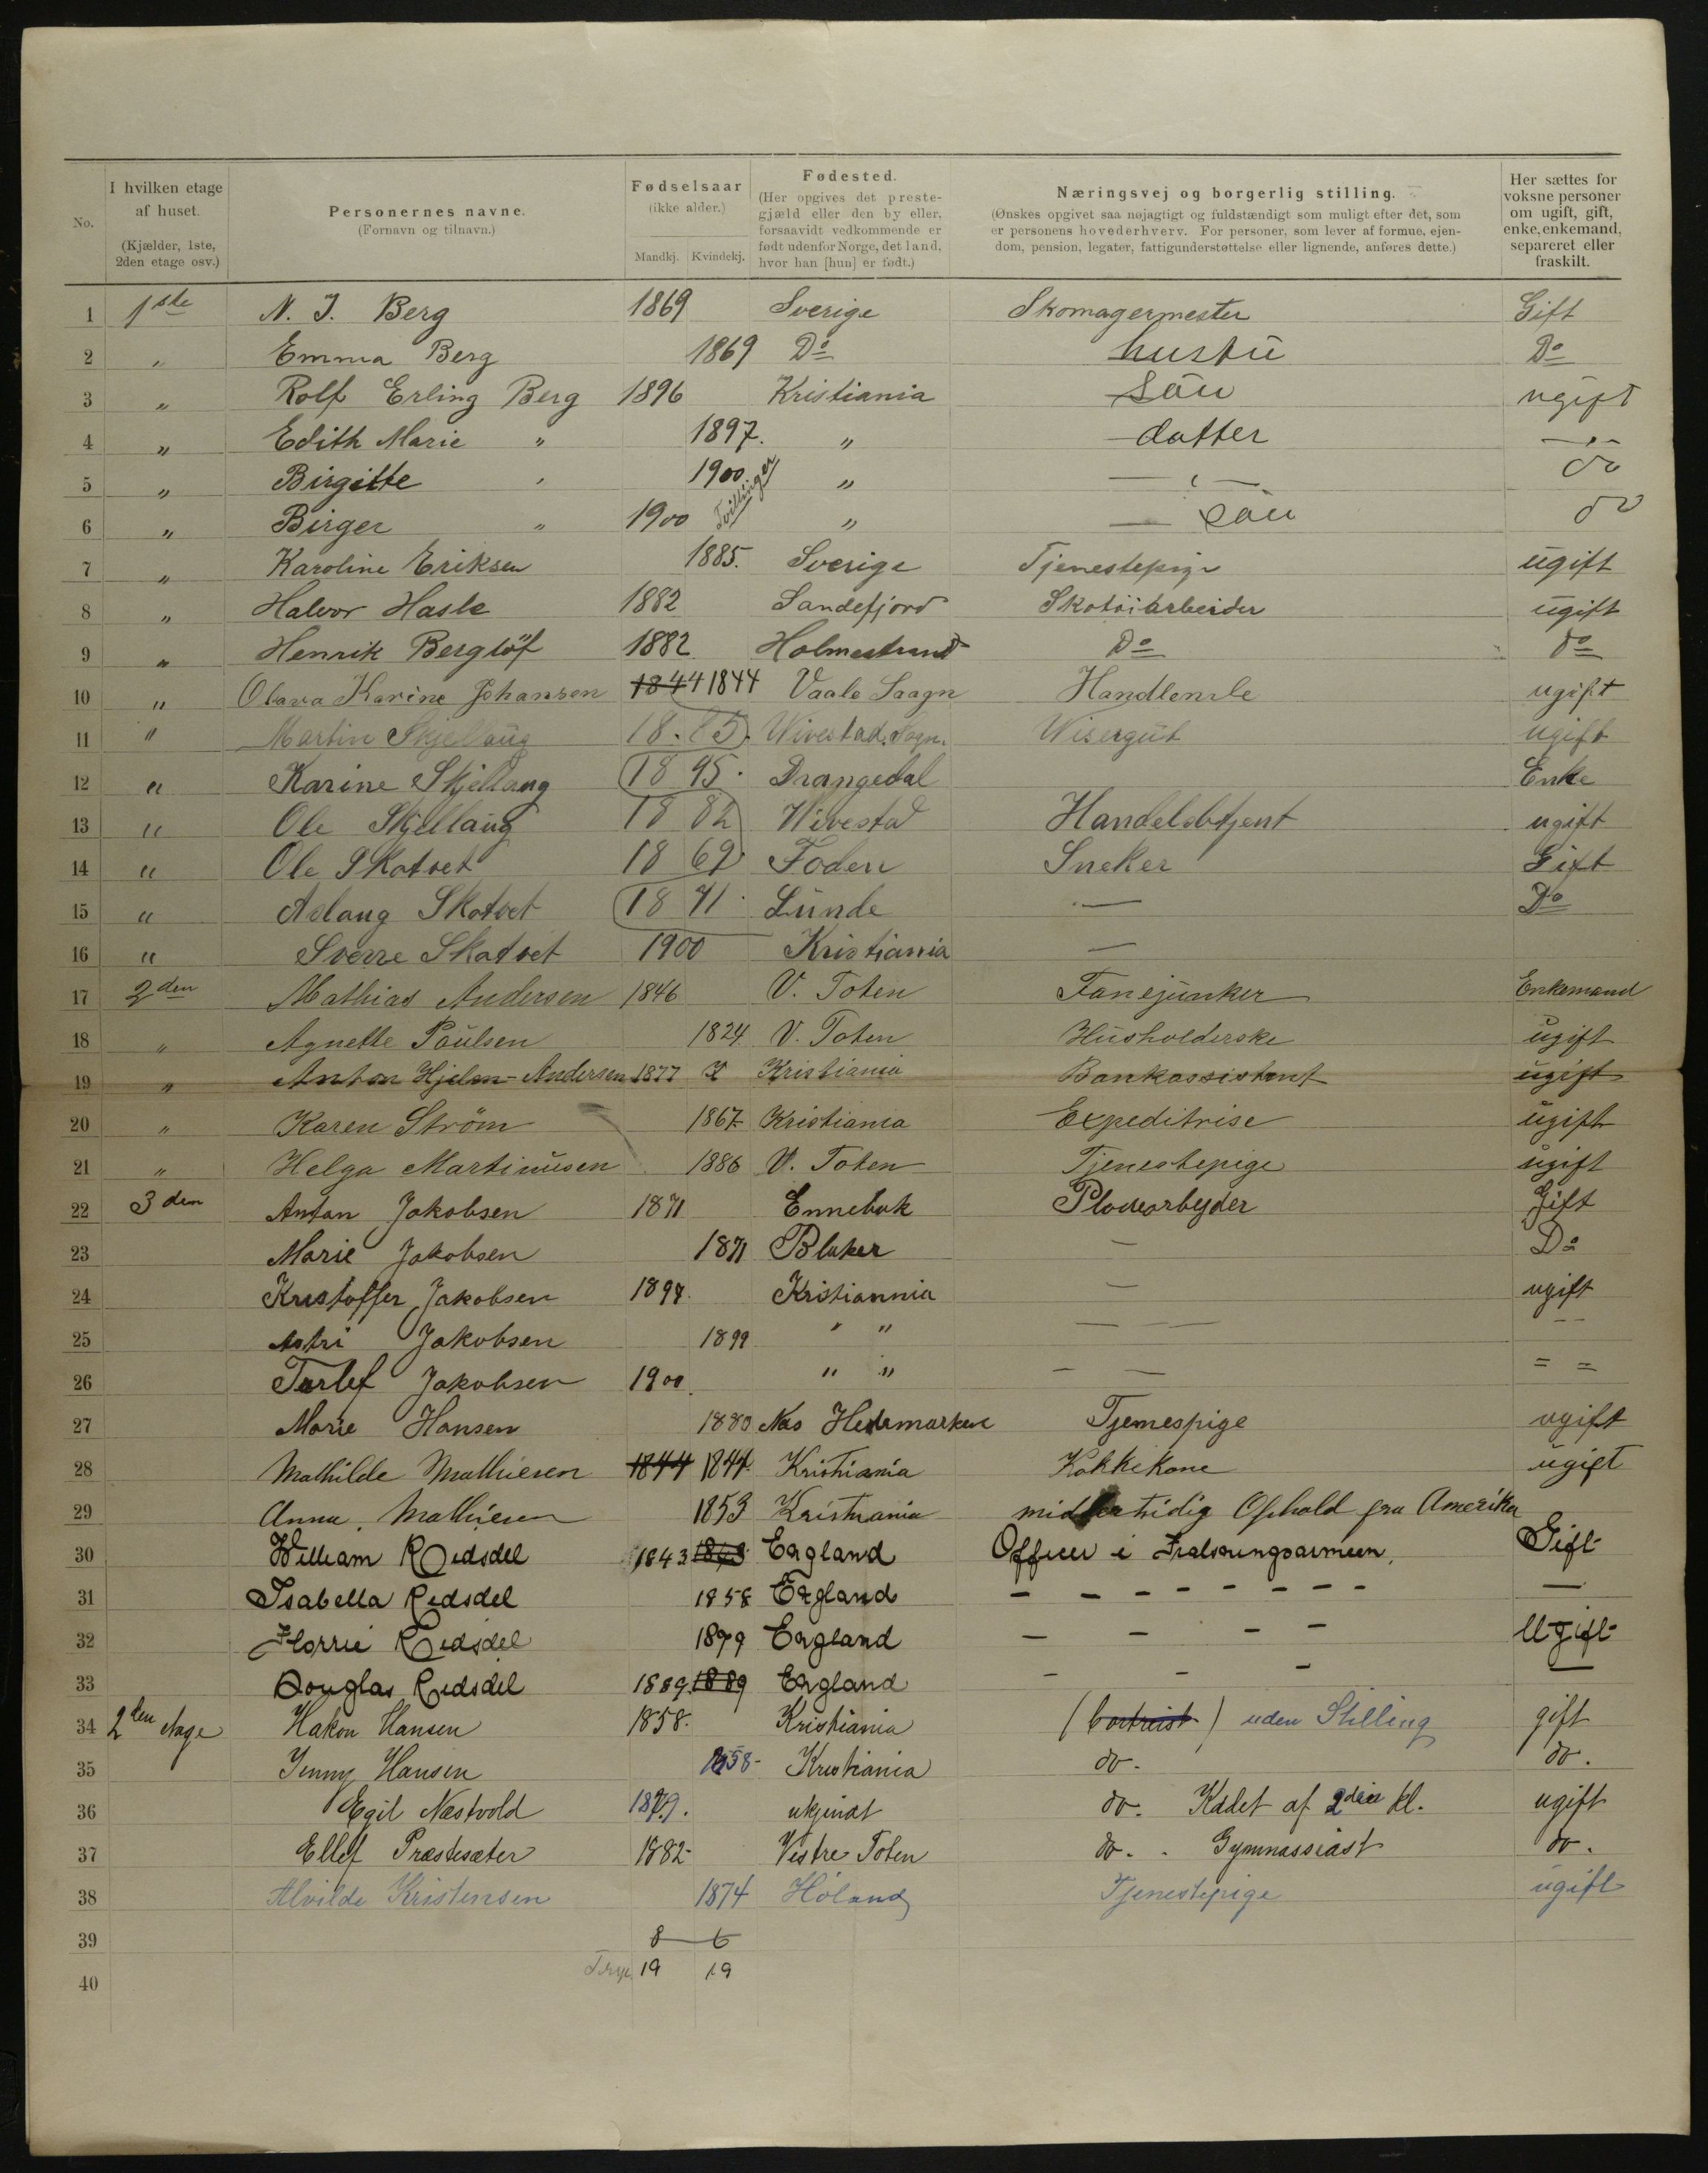 No.
I hvilken etage af huset. (Kjælder, 1ste, 2den etage osv.)
Personernes navne. (Fornavn og tilnavn.)
Fødselsaar (ikke alder.) Mandkj. Kvindekj.
Fødested. (Her opgives det prestegjæld eller den by eller, forsaavidt vedkommende er født udenfor Norge, det land, hvor han [hun] er født.)
Næringsvej og borgerlig stilling. (Ønskes opgivet saa nøjagtigt og fuldstændigt som muligt efter det, som er personens hovederhverv. For personer, som lever af formue, ejendom, pension, legater, fattigunderstøttelse eller lignende, anføres dette.)
Her sættes for voksne personer om ugift, gift, enke, enkemand, separeret eller fraskilt.
1 1ste N. J. Berg 1869 Sverige Skomagermester Gift
2 " Emma Berg 1869 Do hustü Do
3 " Rolf Erling Berg 1896 Kristiania Søn ugift
4 " Edith Marie " 1897. " datter — " —
5 " Birgitte " 1900 Tvillinger " — " — do
6 " Birger " 1900 " — Søn do
7 " Karoline Eriksen 1885. Sverige Tjenestepige ugift
8 " Halvor Hasle 1882 Sandefjord Skotöiarbeider ugift
9 " Henrik Berglöf 1882 Holmestrand Do do
10 " Olava Karine Johansen 1844 1844 Vaale Saagn Handlende ugift
11 " Martin Skjellaug Wivestad. Sogn. Wisergut ugift
12 " Karine Skjellaug 1845. Drangedal Enke
13 " Ole Skjellaug 1882 Wivestad Handelsbtjent ugift
14 " Ole Skotvet 1869 Foden Sneker Gift
15 " Aslaug Skotvet 1871. Lunde — Do
16 " Sverre Skotvet 1900 Kristiania —
17 2den Mathias Andersen 1846 V. Toten Fanejunker Enkemand
18 " Agnette Paulsen 1824 V. Toten Husholderske ugift
19 " Anton Hjelm-Andersen 1877 X Kristiania Bankassistent ugift
20 " Karen Ström 1867 Kristiania Expeditrise ugift
21 " Helga Martinusen 1886 V. Toten Tjenestepige ugift
22 3den Anton Jakobsen 1871 Ennebak Gift
23 Marie Jakobsen 1871 Blaker — Do
24 Kristoffer Jakobsen 1897. Kristiannia — ugift
25 Astri Jakobsen 1899 " " — — — — —
26 Torlef Jakobsen 1900. " " — — = =
27 Marie Hansen 1880 Nas Hedemarken Tjemespige ugift
28 Mathilde Mathiesen 1844 1844. Kristiania Kokkekone ugift
29 Anna. Mathiesen 1853 Kristiania midlertidig Ophold fra Amerika
30 William Redsdel 1843 1843 England Officer i Frelsningsarmeen. Gift
31 Isabella Redsdel 1858 England — — — — — — — — —
32 Florrie Redsdel 1879 England — — — — Ugift
33 Douglas Redsdel 1889. 1889 England — — — —
34 2den etage Hakon Hansen 1858. Kristiania (bortreist) uden Stilling gift
35 Jenny Hansen 1858- Kristiania do. do.
36 Egil Næstvold 1879. ukjendt do. Kadet af 2den kl. ugift
37 Ellef Præstesæter 1882- Vestre Toten do. . Gymnassiast do.
38 Alvilde Kristensen 1874 Höland Tjenestepige ugift
39 8 — 6
40 19 19